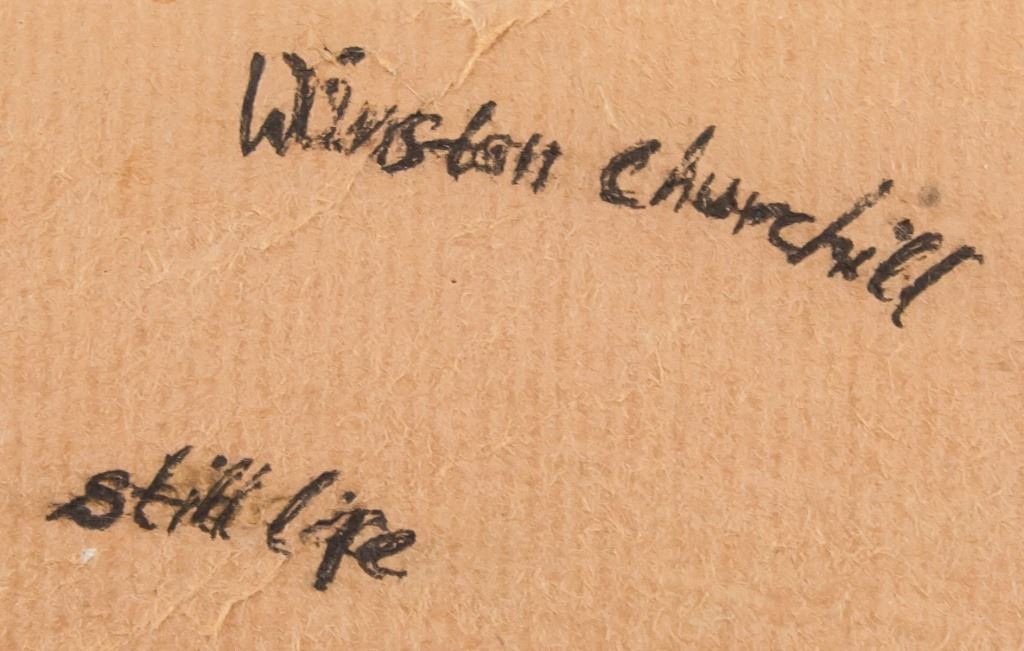 Winston Churchill
still life